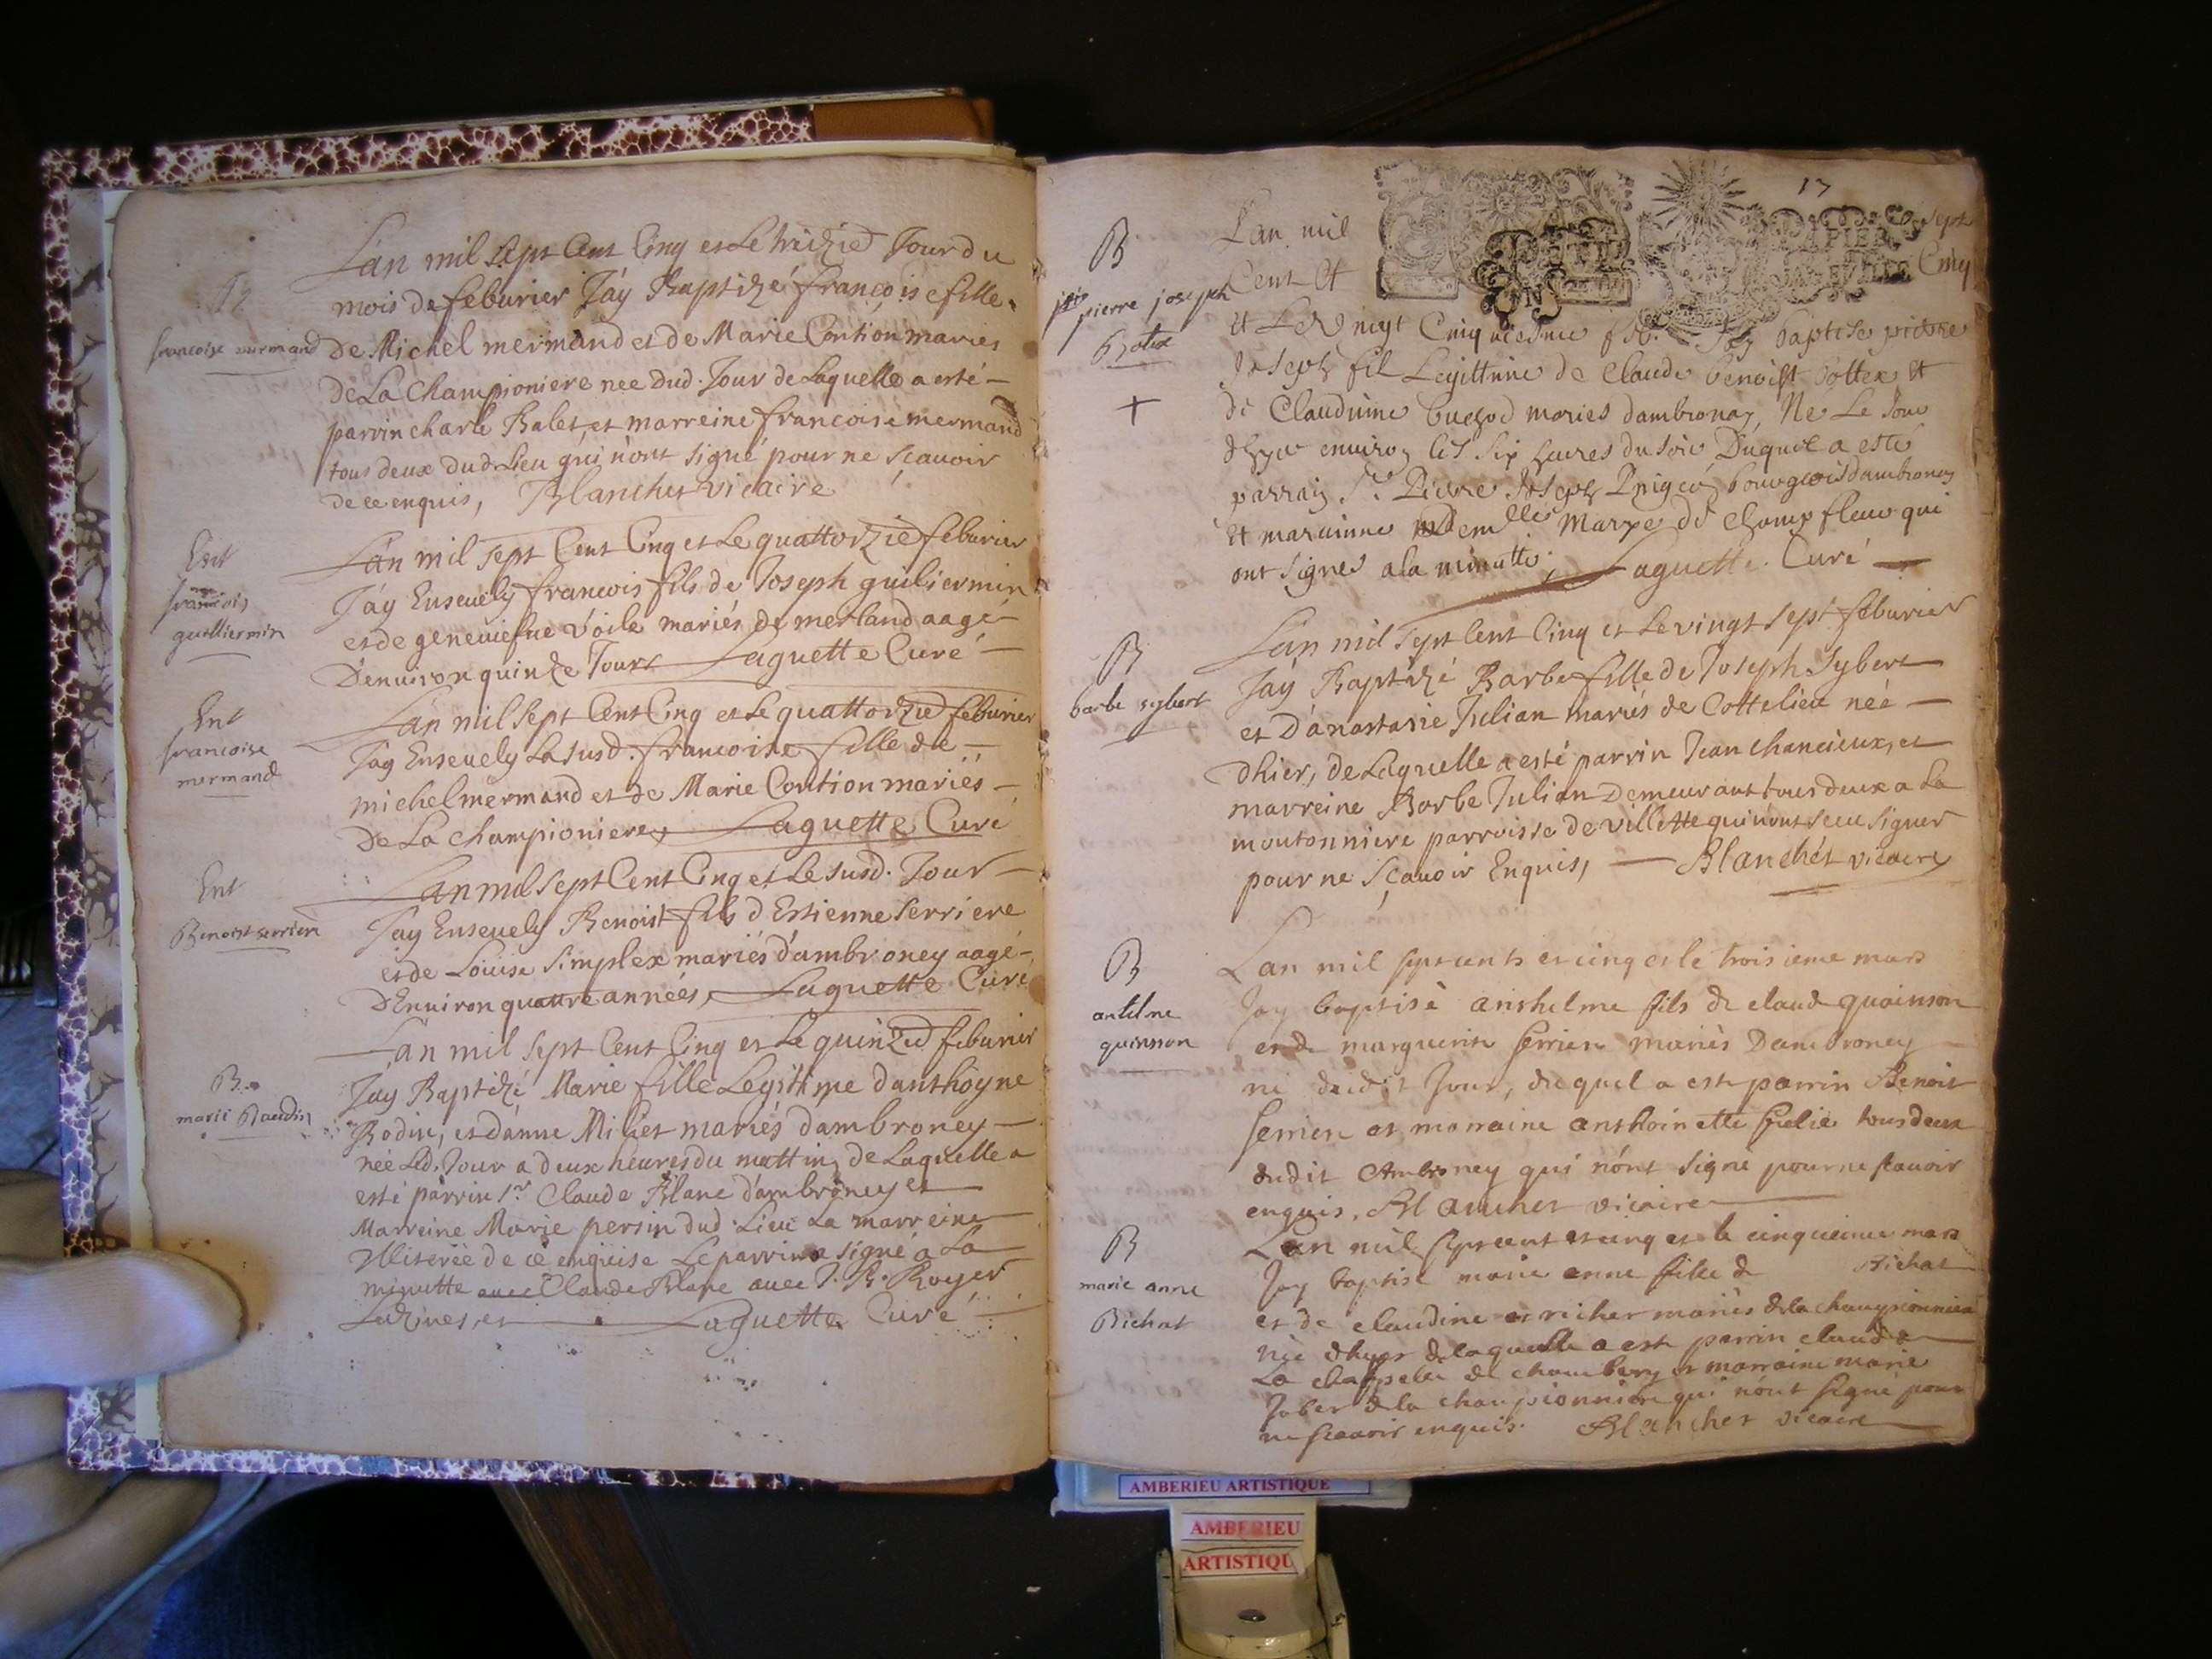 B
francoise mermand
L'an mil sept Cent Cinq et Le treizie Jour du
mois de feburier J'ay Baptizé francoise fille
De Michel mermand et de Marie Contion mariés
De La Championiere nee dud. Jour de Laquelle a esté
parrin charle Balet, et marreine francoise mermand
tous deux dud. Lieu qui n'ont signé pour ne scauoir
de ce enquis, Blanchet vicaire
Ent
francois
guilliermin
L'an mil sept Cent Cinq et Le quattorzie feburier
J'ay Enseuely francois fils de Joseph guiliermin
et de geneuiefue Voile mariés de merland aagé
D'enuiron quinze Jours Laguette Curé
Ent
francoise
mermand
L'an mil sept Cent Cinq et Le quattorzie feburier
J'ay Enseuely La susd. francoise fille de
michel mermand et de Marie Contion mariés
De La Championiere, Laguette Curé
Ent
Benoist serriere
L'an mil sept Cent Cinq et Le susd. Jour
J'ay Enseuely Benoist fils d'Estienne Serriere
et de Loüise Simplex mariés d'ambroney aagé
D'Enuiron quattre années, Laguette Curé
B
marie Baudin
L'an mil sept Cent Cinq et Le quinzie feburier
J'ay Baptizé Marie fille Legitime d'anthoyne
Bodin, et d'anne Milliet mariés d'ambroney
née Led. Jour a deux heures du mattin, de Laquelle a
esté parrin Sr. Claude Blanc d'ambroney et
Marreine Marie persin dud. Lieu La marreine
Illiterée de ce enquise Le parrin a signé a La
minutte auec Claude Blanc auec J. B. Royer
Laguette Curé
17
B
pierre joseph
Botex
+
L'an mil sept
Cent Et Cinq
PAPIER
et Le Vingt Cinquiesme J'ay baptisé pierre
Joseph fil Legittime de Claude benoist bottex Et
de Claudine bugod mariés dambronay, Né Le Jour
dhyer enuiron les Six heures du soir Duquel a esté
parrain Sr. Pierre Joseph bourgeois dambronay
Et maraine demlle Marye de Champfleur qui
ont signes a la minutte, Laguette Curé
B
barbe sybert
L'an mil sept Cent Cinq et Le vingt sept feburier
J'ay Baptizé Barbe fille de Joseph Sybert
et D'anastasie Julian mariés de Cottelieu née
dhier, de Laquelle a esté parrin Jean chancieux, et
marreine Barbe Julian Demeurant tous deux a La
moutonniere parroisse de villette qui n'ont sceu signer
pour ne sçauoir Enquis, Blanchet vicaire
B
antelme
quinson
L'an mil sept cents et cinq et le troisieme mars
Jay baptisé anthelme fils de claude quoinson
et de marguerite serriere mariés Dambroney
né dudit Jour, duquel a esté parrin Benoit
serriere et marraine anthoinette tous deux
dudit Ambroney qui n'ont signé pour ne scauoir
enquis, Blanchet vicaire
B
marie anne
Bichat
L'an mil sept cent et cinq et le cinquieme mars
Jay baptisé marie anne fille de Bichat
et de claudine richer mariés de la championniere
née dhyer de laquelle a esté parrin claude
La chappelle de chambery et marraine marie
Jober de la championniere qui n'ont signé pour
ne scauoir enquis. Blanchet vicaire
AMBERIEU ARTISTIQUE
AMBERIEU
ARTISTIQU